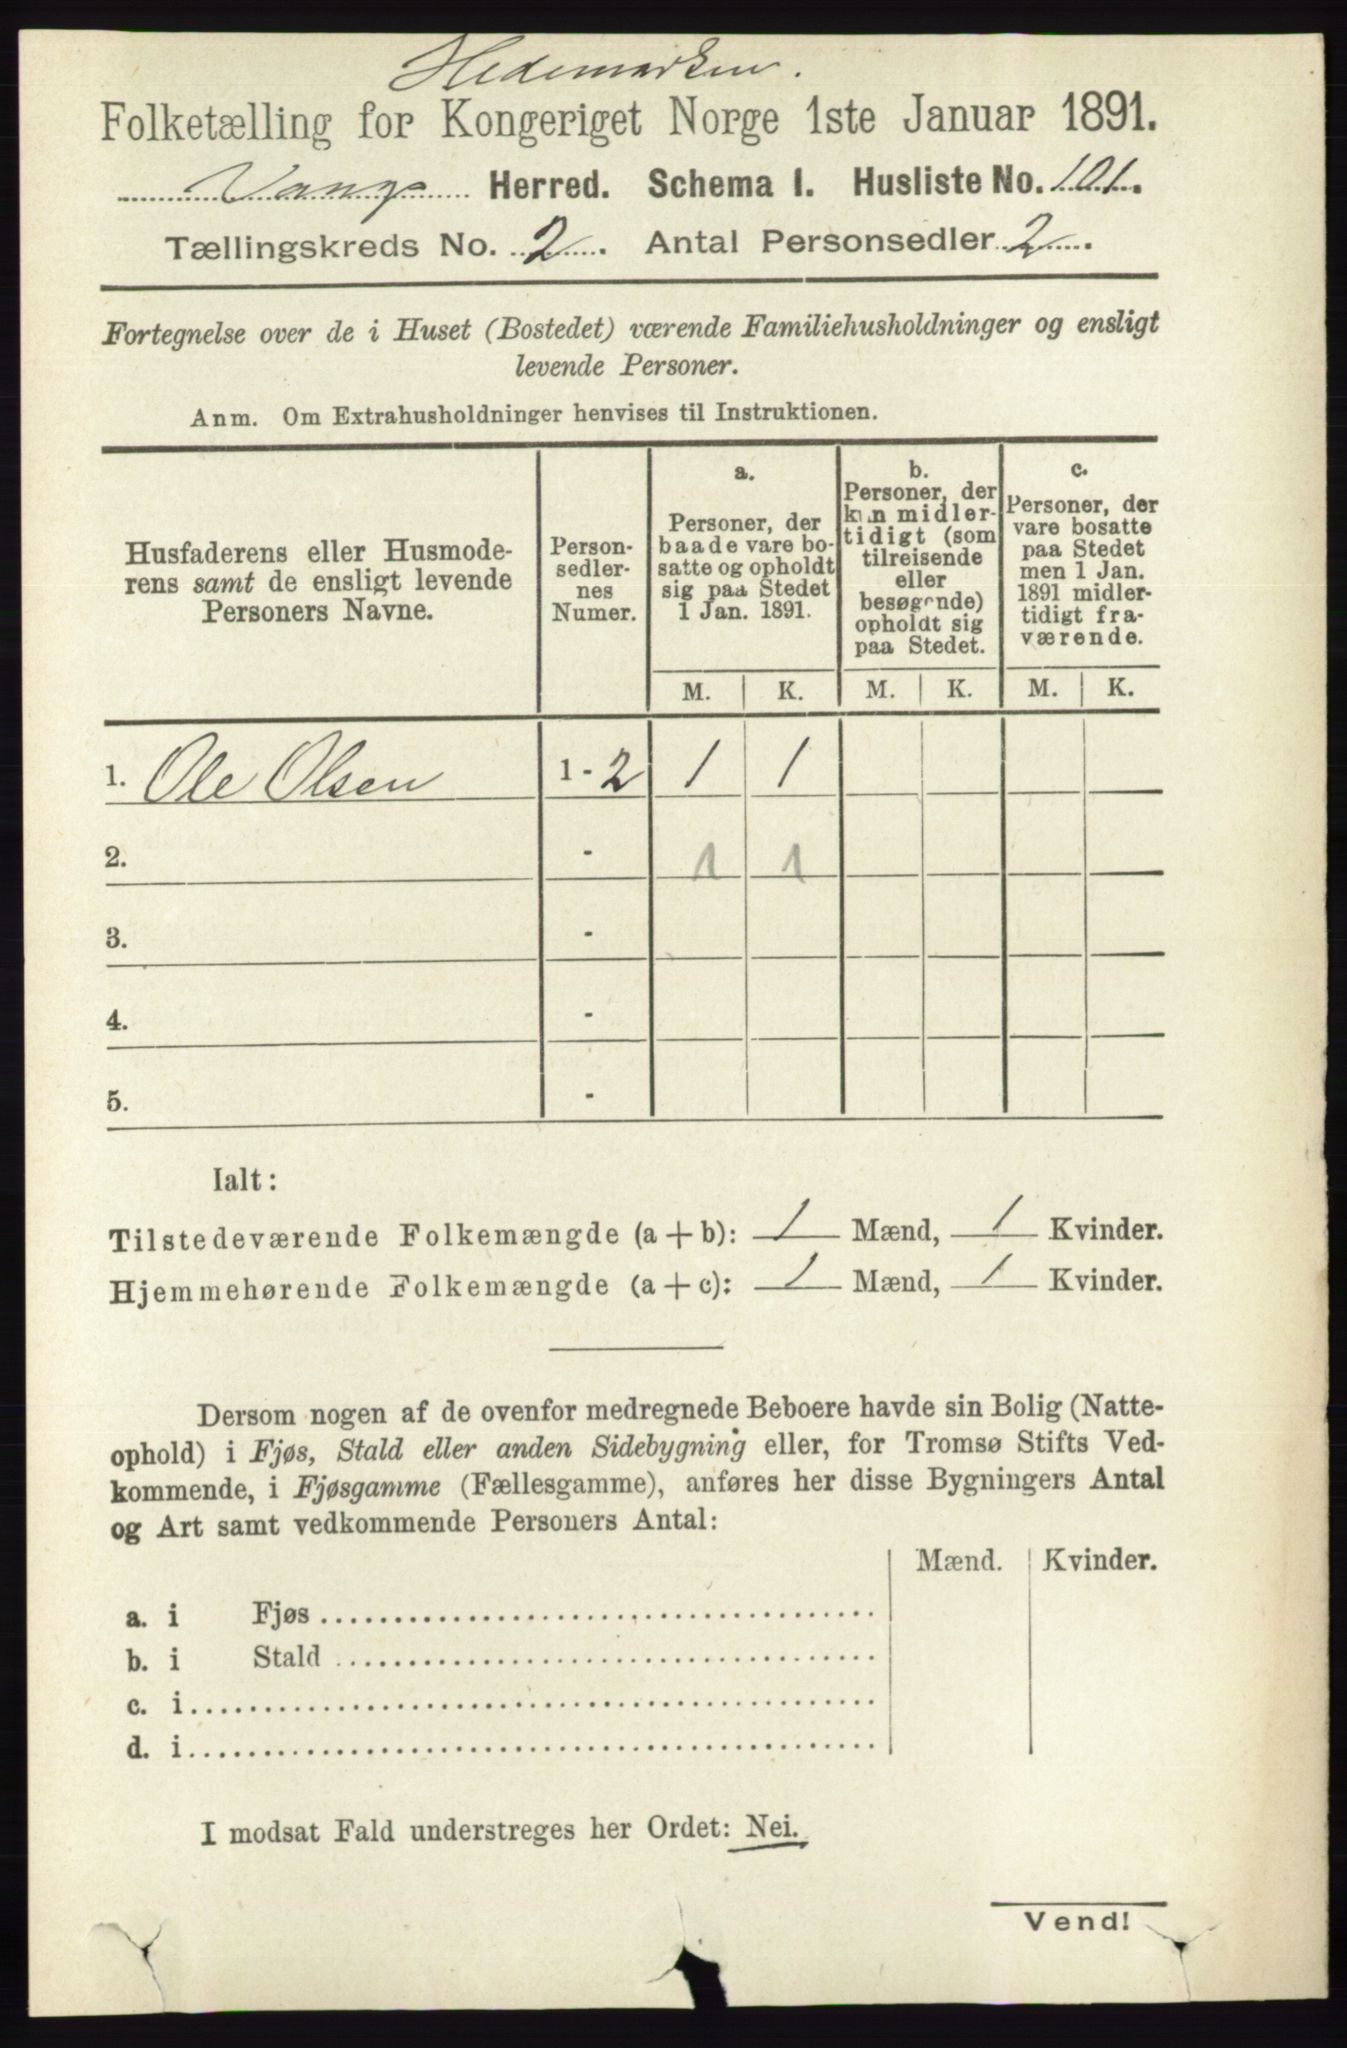 Hedemarken.
Folketælling for Kongeriget Norge 1ste Januar 1891.
Vangs Herred. Schema I. Husliste No. 101.
Tællingskreds No. 2. Antal Personsedler 2.
Fortegnelse over de i Huset (Bostedet) værende Familiehusholdninger og ensligt
levende Personer.
Anm. Om Extrahusholdninger henvises til Instruktionen.
Husfaderens eller Husmode-
rens samt de ensligt levende
Personers Navne.
Person-
sedler-
nes
Numer.
a.
Personer, der
baade vare bo-
satte og opholdt
sig paa Stedet
1 Jan. 1891.
b.
Personer, der
kun midler-
tidigt (som
tilreisende
eller
besøgende)
opholdt sig
paa Stedet.
c.
Personer, der
vare bosatte
paa Stedet
men 1 Jan.
1891 midler-
tidigt fra-
værende.
M. K. M. K. M. K.
1. Ole Olsen 1 - 2 1 1
2. - 1 1
3. -
4. -
5. -
Ialt:
Tilstedeværende Folkemængde (a + b): 1 Mænd, 1 Kvinder.
Hjemmehørende Folkemængde (a + c): 1 Mænd, 1 Kvinder.
Dersom nogen af de ovenfor medregnede Beboere havde sin Bolig (Natte-
ophold) i Fjøs, Stald eller anden Sidebygning eller, for Tromsø Stifts Ved-
kommende, i Fjøsgamme (Fællesgamme), anføres her disse Bygningers Antal
og Art samt vedkommende Personers Antal:
Mænd. Kvinder.
a. i Fjøs
b. i Stald
c. i
d. i
I modsat Fald understreges her Ordet: Nei.
Vend!